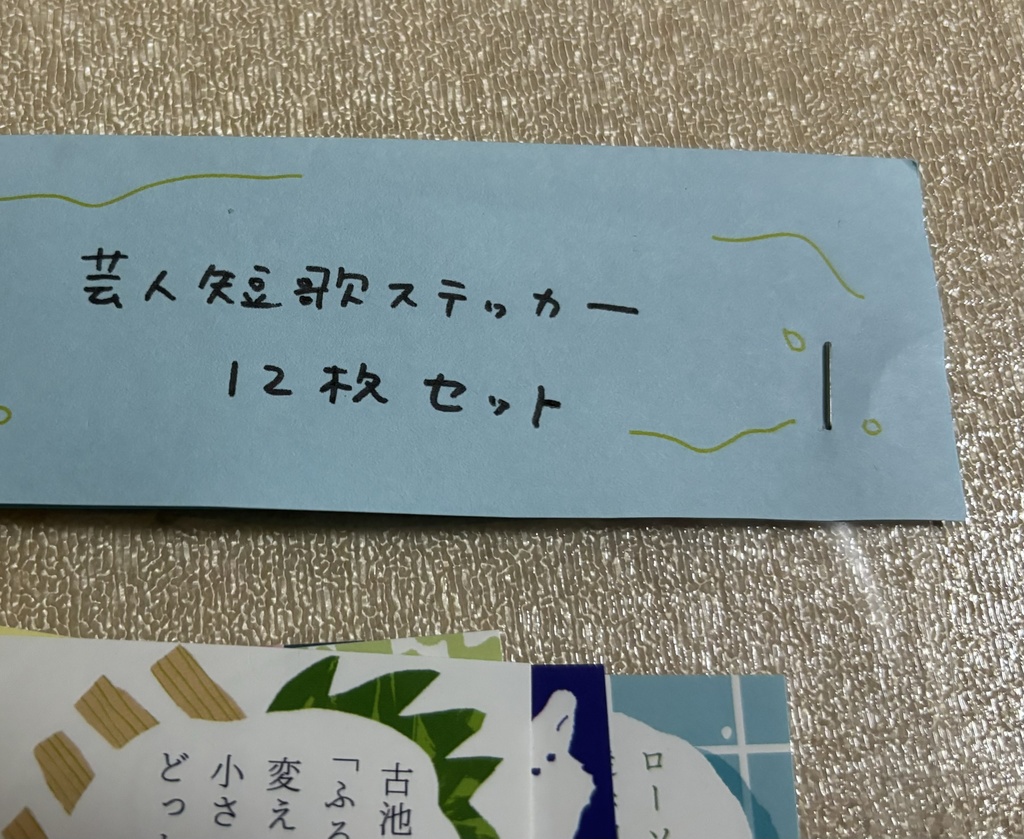 芸人短歌ステッカー
12枚セット
古池
「ふる
変え
小さ
どっ
ロー